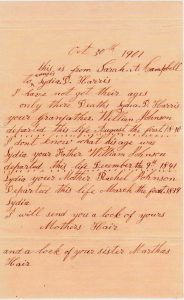 Oct 30th 1901
this is from Sarah A Campbell
to Lydia D. Harris
I have not get their ages
only there Deaths Lydia D. Harris
your Granfather William Johnson
departed this life August the first 18
I dont know what his age was
Lydia your Father William Johnson
departed this life December the 9th 1841
Lydia your Mother Rachel Johnson
Departed this life March the first 1859
Lydia
I will send you a lock of yours
Mothers Hair
and a lock of your sister Marthas
Hair